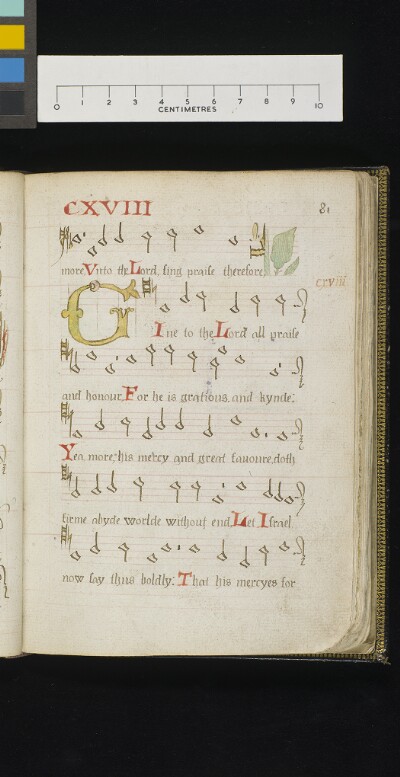 0 1 2 3 4 5 6 7 8 9 10
CENTIMETRES
CXVIII
81
more Vnto the Lord, sing praise therefore
cxviii
GIue to the Lord all praise
and honour, For he is gratious, and kynde:
Yea more, his mercy and great fauoure, doth
firme abyde worlde without end. Let Israel
now say thus boldly: That his mercyes for